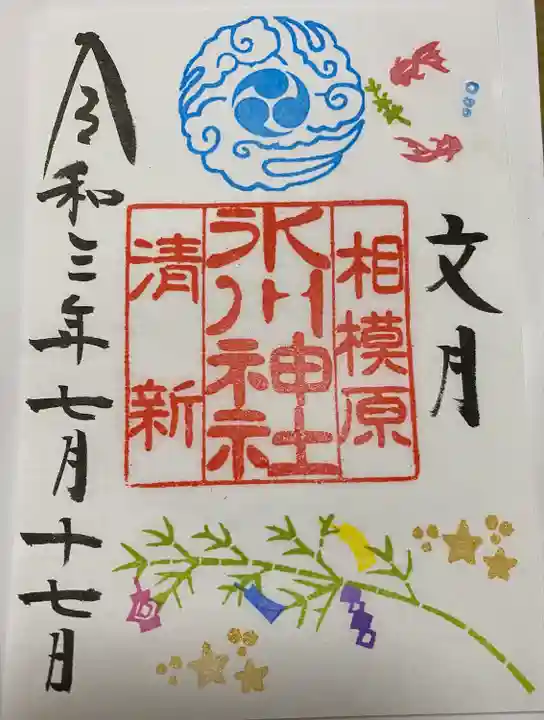 文月
相模原
氷川神社
清新
令和三年七月十七日